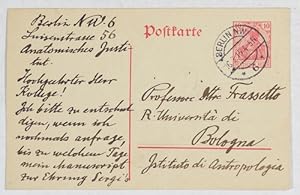 Berlin NW 6
Luisenstrasse 56
Anatomisches Insti
tut.
Hochgeehrter Herr
Kollege!
Ich bitte zu entschul
digen, wenn ich
nochmals anfrage,
bis zu welchem Tage
mein Manuscript
zur Ehrung Sergi's
Postkarte
BERLIN N.W.
10
Professor Dttr. Frassetto
R. Università di
Bologna
Istituto di Antropologia